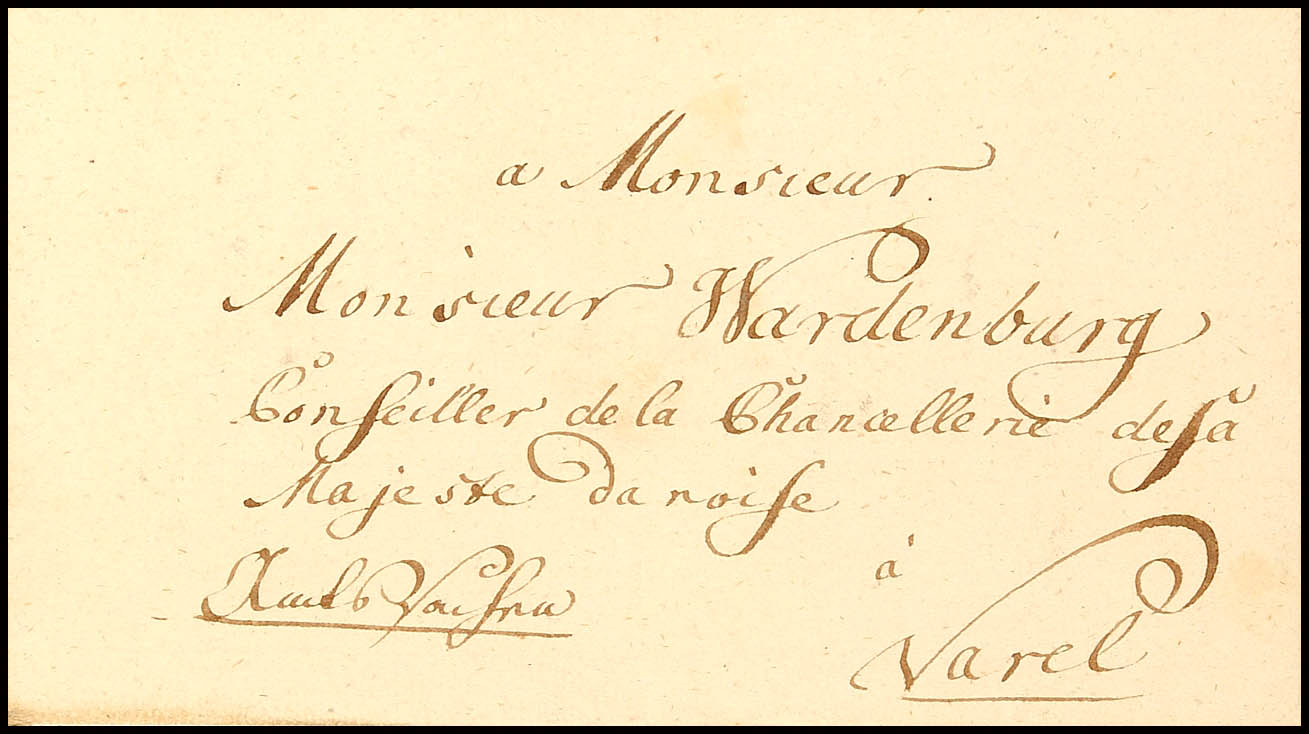 a Monsieur
Monsieur Wardenburg
Conseiller de la Chancellerie de sa
Majeste danoise
Amts Sachen
à
Varel